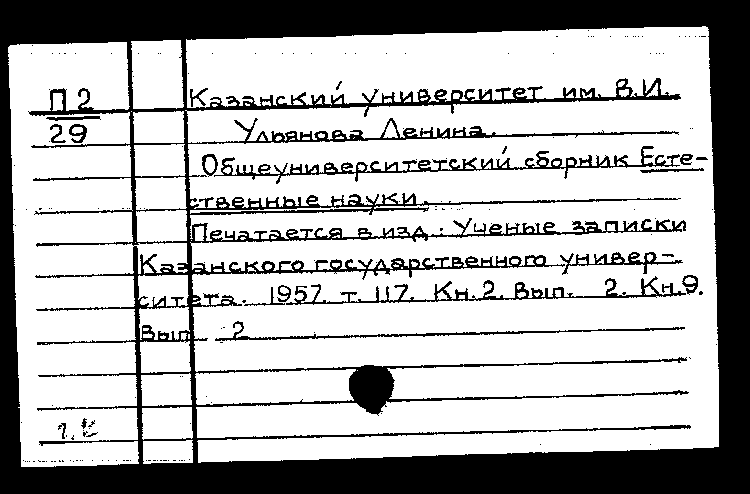 П 2
29
Казанский университет им. В.И.
Ульянова Ленина.
Общеуниверситетский сборник Есте-
ственные науки.
Печатается в изд.: Ученые записки
Казанского государственного универ-
ситета. 1957. т. 117. Кн. 2. Вып. 2. Кн. 9.
Вып. 2